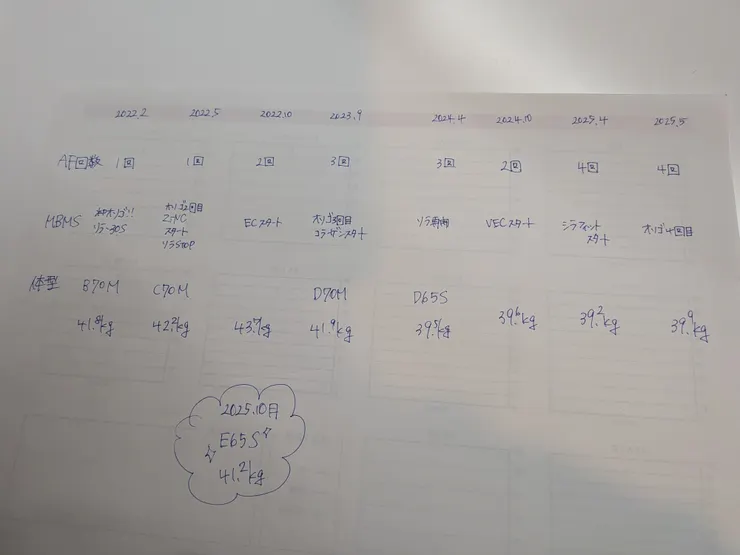 2022.2 2022.5 2022.10 2023.9 2024.4 2024.10 2025.4 2025.5
AF回数 1回 1回 2回 3回 3回 2回 4回 4回
MBMS オリゴ!! オリゴ2回目 ECスタート オリゴ3回目 ソラ専用 VECスタート シラフィット オリゴ4回目
ソラ-30S ZINC コラーゲンスタート スタート
スタート
ソラSTOP
体型 B70M C70M D70M D65S
41.8kg 42.2kg 43.7kg 41.9kg 39.5kg 39.6kg 39.2kg 39.9kg
2025.10月
E65S
41.2kg